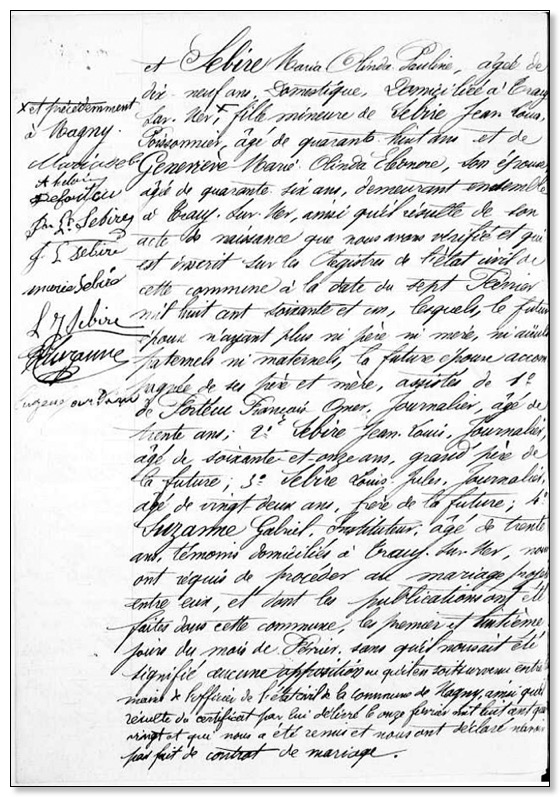 x et précédemment
à Magny.
Defortou
Jn Ls Sebire
J L Sebire
marie Sebire
L J Sebire
GSuzanne
et Sebire Maria Olinda Pauline, âgée de
dix-neuf ans, Domestique, Domiciliée à Tracy
sur-Mer, x fille mineure de Sebire Jean Louis,
Poissonnier, âgé de quarante huit ans et de
Geneviève Marie Olinda Eléonore, son épouse
âgée de quarante six ans, demeurant ensemble
à Tracy-sur-Mer, ainsi qu'il résulte de son
acte de naissance que nous avons vérifié et qui
est inscrit sur les Registres de l'état civil de
cette commune à la date du sept Février
mil huit cent soixante et un, lesquels, le futur
époux n'ayant plus ni père ni mère, ni aïeuls
paternels ni maternels, la future épouse accom
pagnée de ses père et mère, assistés de 1°
de François Omer, Journalier, âgé de
trente ans; 2° Sebire Jean-Louis, Journalier,
âgé de soixante-et-onze ans, grand père de
la future; 3° Sebire Louis Jules, Journalier,
âgé de vingt deux ans, frère de la future; 4°
Suzanne Gabriel, Instituteur, âgé de trente
ans, témoins domiciliés à Tracy-sur-Mer, nous
ont requis de procéder au mariage projeté
entre eux, et dont les publications ont été
faites dans cette commune, les premier et huitième
jours du mois de Février, sans qu'il nous ait été
signifié aucune opposition ni qu'il en soit survenu entre les
mains de l'officier de l'état civil de la commune de Magny, ainsi qu'il
résulte du certificat par lui délivré le onze février mil huit cent quatre
vingt et qui nous a été remis et nous ont déclaré n'avoir
pas fait de contrat de mariage.